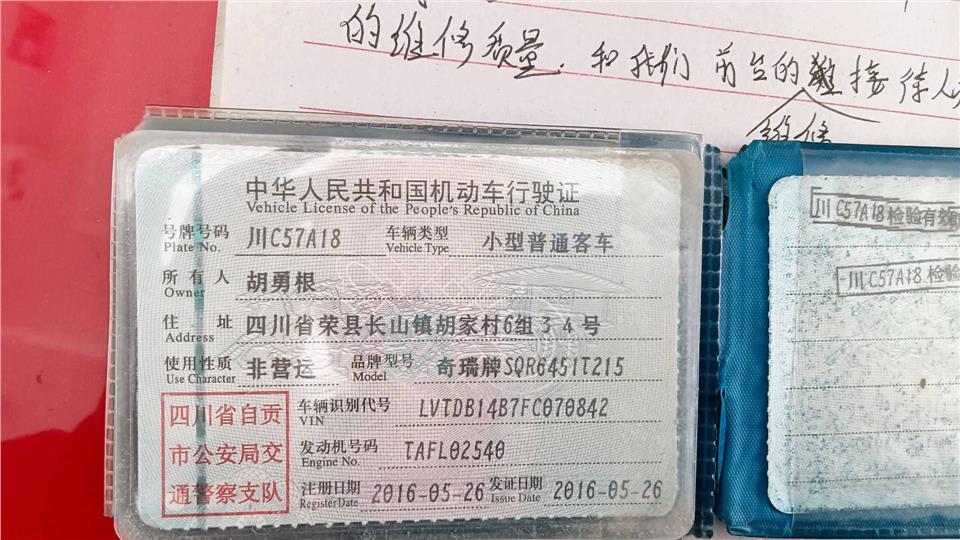 的维修质量.和我们前台的接待人
维修
中华人民共和国机动车行驶证
Vehicle License of the People's Republic of China
号牌号码 川C57A18 车辆类型 小型普通客车
Plate No. Vehicle Type
所有人 胡勇根
Owner
住址 四川省荣县长山镇胡家村6组34号
Address
使用性质 非营运 品牌型号 奇瑞牌SQR6451T215
Use Character Model
四川省自贡
市公安局交
通警察支队
车辆识别代号 LVTDB14B7FC070842
VIN
发动机号码 TAFL02540
Engine No.
注册日期 2016-05-26 发证日期 2016-05-26
Register Date Issue Date
川C57A18检验有效
川C57A18检验